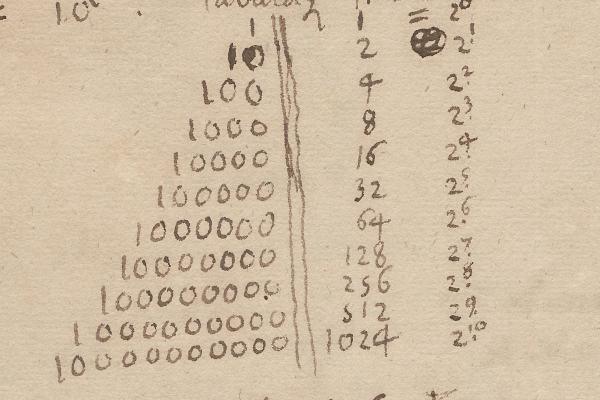 1 1 = 2⁰
10 2 2¹
100 4 2².
1000 8 2³.
10000 16 2⁴.
100000 32 2⁵.
1000000 64 2⁶.
10000000 128 2⁷.
100000000 256 2⁸.
1000000000 512 2⁹.
10000000000 1024 2¹⁰.